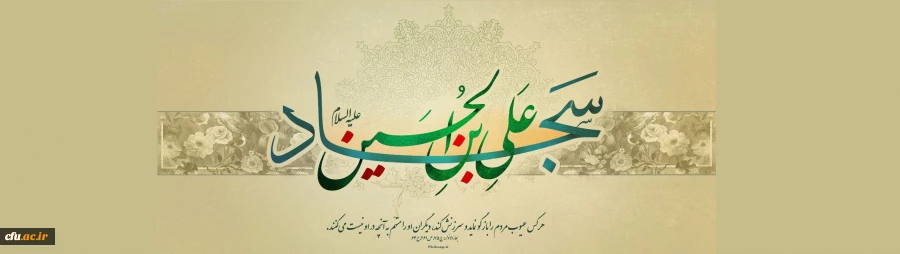 سَجّاد
عَلِيِّ بنِ الحُسَين
علیه السلام
هر کس عیوب مردم را بازگو نماید و سرزنش کند، دیگران او را متهم به آنچه در او نیست می کنند.
cfu.ac.ir